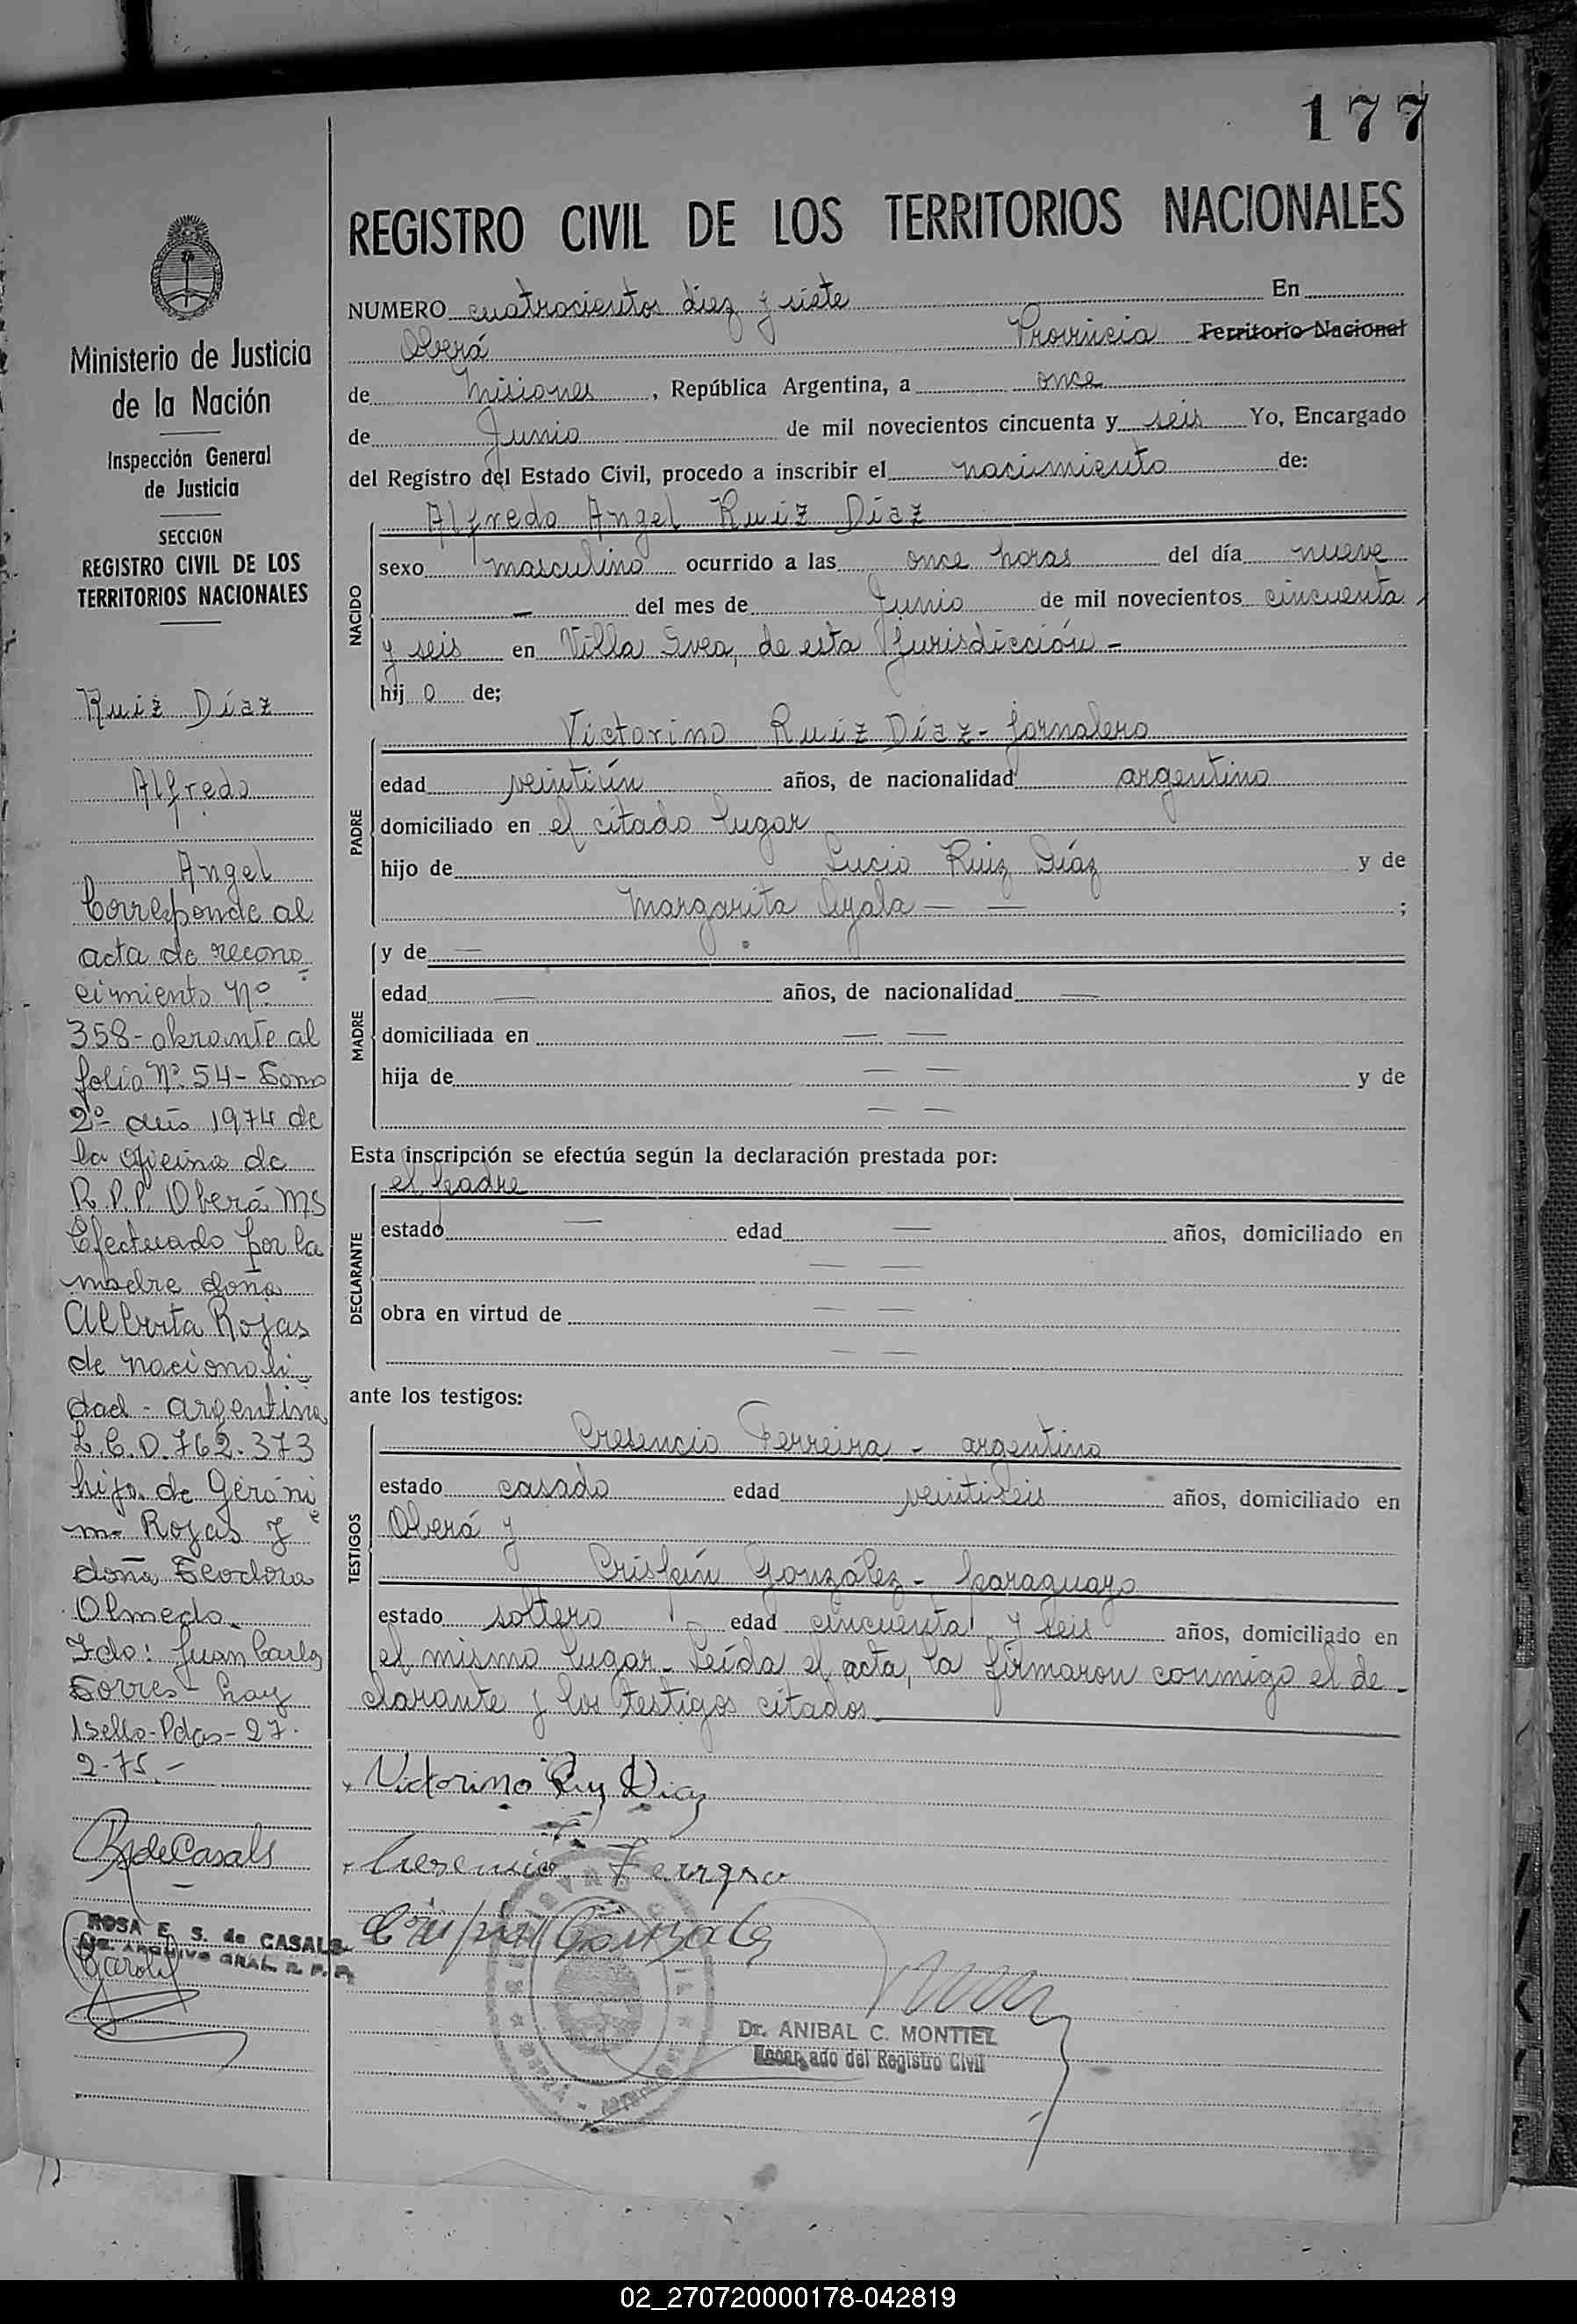 177
Ministerio de Justicia
de la Nación
Inspección General
de Justicia
SECCION
REGISTRO CIVIL DE LOS
TERRITORIOS NACIONALES
Ruiz Díaz
Alfredo
Angel
Corresponde al
acta de recono
cimiento Nº
358-obrante al
folio Nº 54- Tomo
2º año 1974 de
la oficina de
R.P.P. Oberá MS
Efectuado por la
madre doña
Alberta Rojas
de nacionali
dad - argentina
L.C.0.762.373
hija de Geróni
mo Rojas y
doña Teodora
Olmedo
Fdo: Juan Carlos
Torres - hay
1 sello-Pdas-27.
2-75.-
R de Casals
ROSA E. S. de CASALS
ARCHIVO GRAL. R. P. P.
REGISTRO CIVIL DE LOS TERRITORIOS NACIONALES
NUMERO cuatrocientos diez y siete En
Oberá Provincia Territorio Nacional
de Misiones, República Argentina, a once
de Junio de mil novecientos cincuenta y seis Yo, Encargado
del Registro del Estado Civil, procedo a inscribir el nacimiento de:
NACIDO
Alfredo Angel Ruiz Díaz
sexo masculino ocurrido a las once horas del día nueve
— del mes de Junio de mil novecientos cincuenta
y seis en Villa Svea, de esta Jurisdicción -
hij o de;
PADRE
Victorino Ruiz Díaz - jornalero
edad veintiún años, de nacionalidad argentino
domiciliado en el citado lugar
hijo de Lucio Ruiz Díaz y de
Margarita Ayala — — ;
MADRE
y de —
edad — años, de nacionalidad —
domiciliada en — —
hija de — — y de
— —
Esta inscripción se efectúa según la declaración prestada por:
DECLARANTE
el padre
estado — edad — años, domiciliado en
— —
obra en virtud de — —
— —
ante los testigos:
TESTIGOS
Cresencio Ferreira - argentino
estado casado edad veintiseis años, domiciliado en
Oberá y
Crispín González - paraguayo
estado soltero edad cincuenta y seis años, domiciliado en
el mismo lugar. Leída el acta, la firmaron conmigo el de-
clarante y los testigos citados.
Victorino Ruy Diaz
Cresencio
Dr. ANIBAL C. MONTIEL
Encargado del Registro Civil
02_270720000178-042819